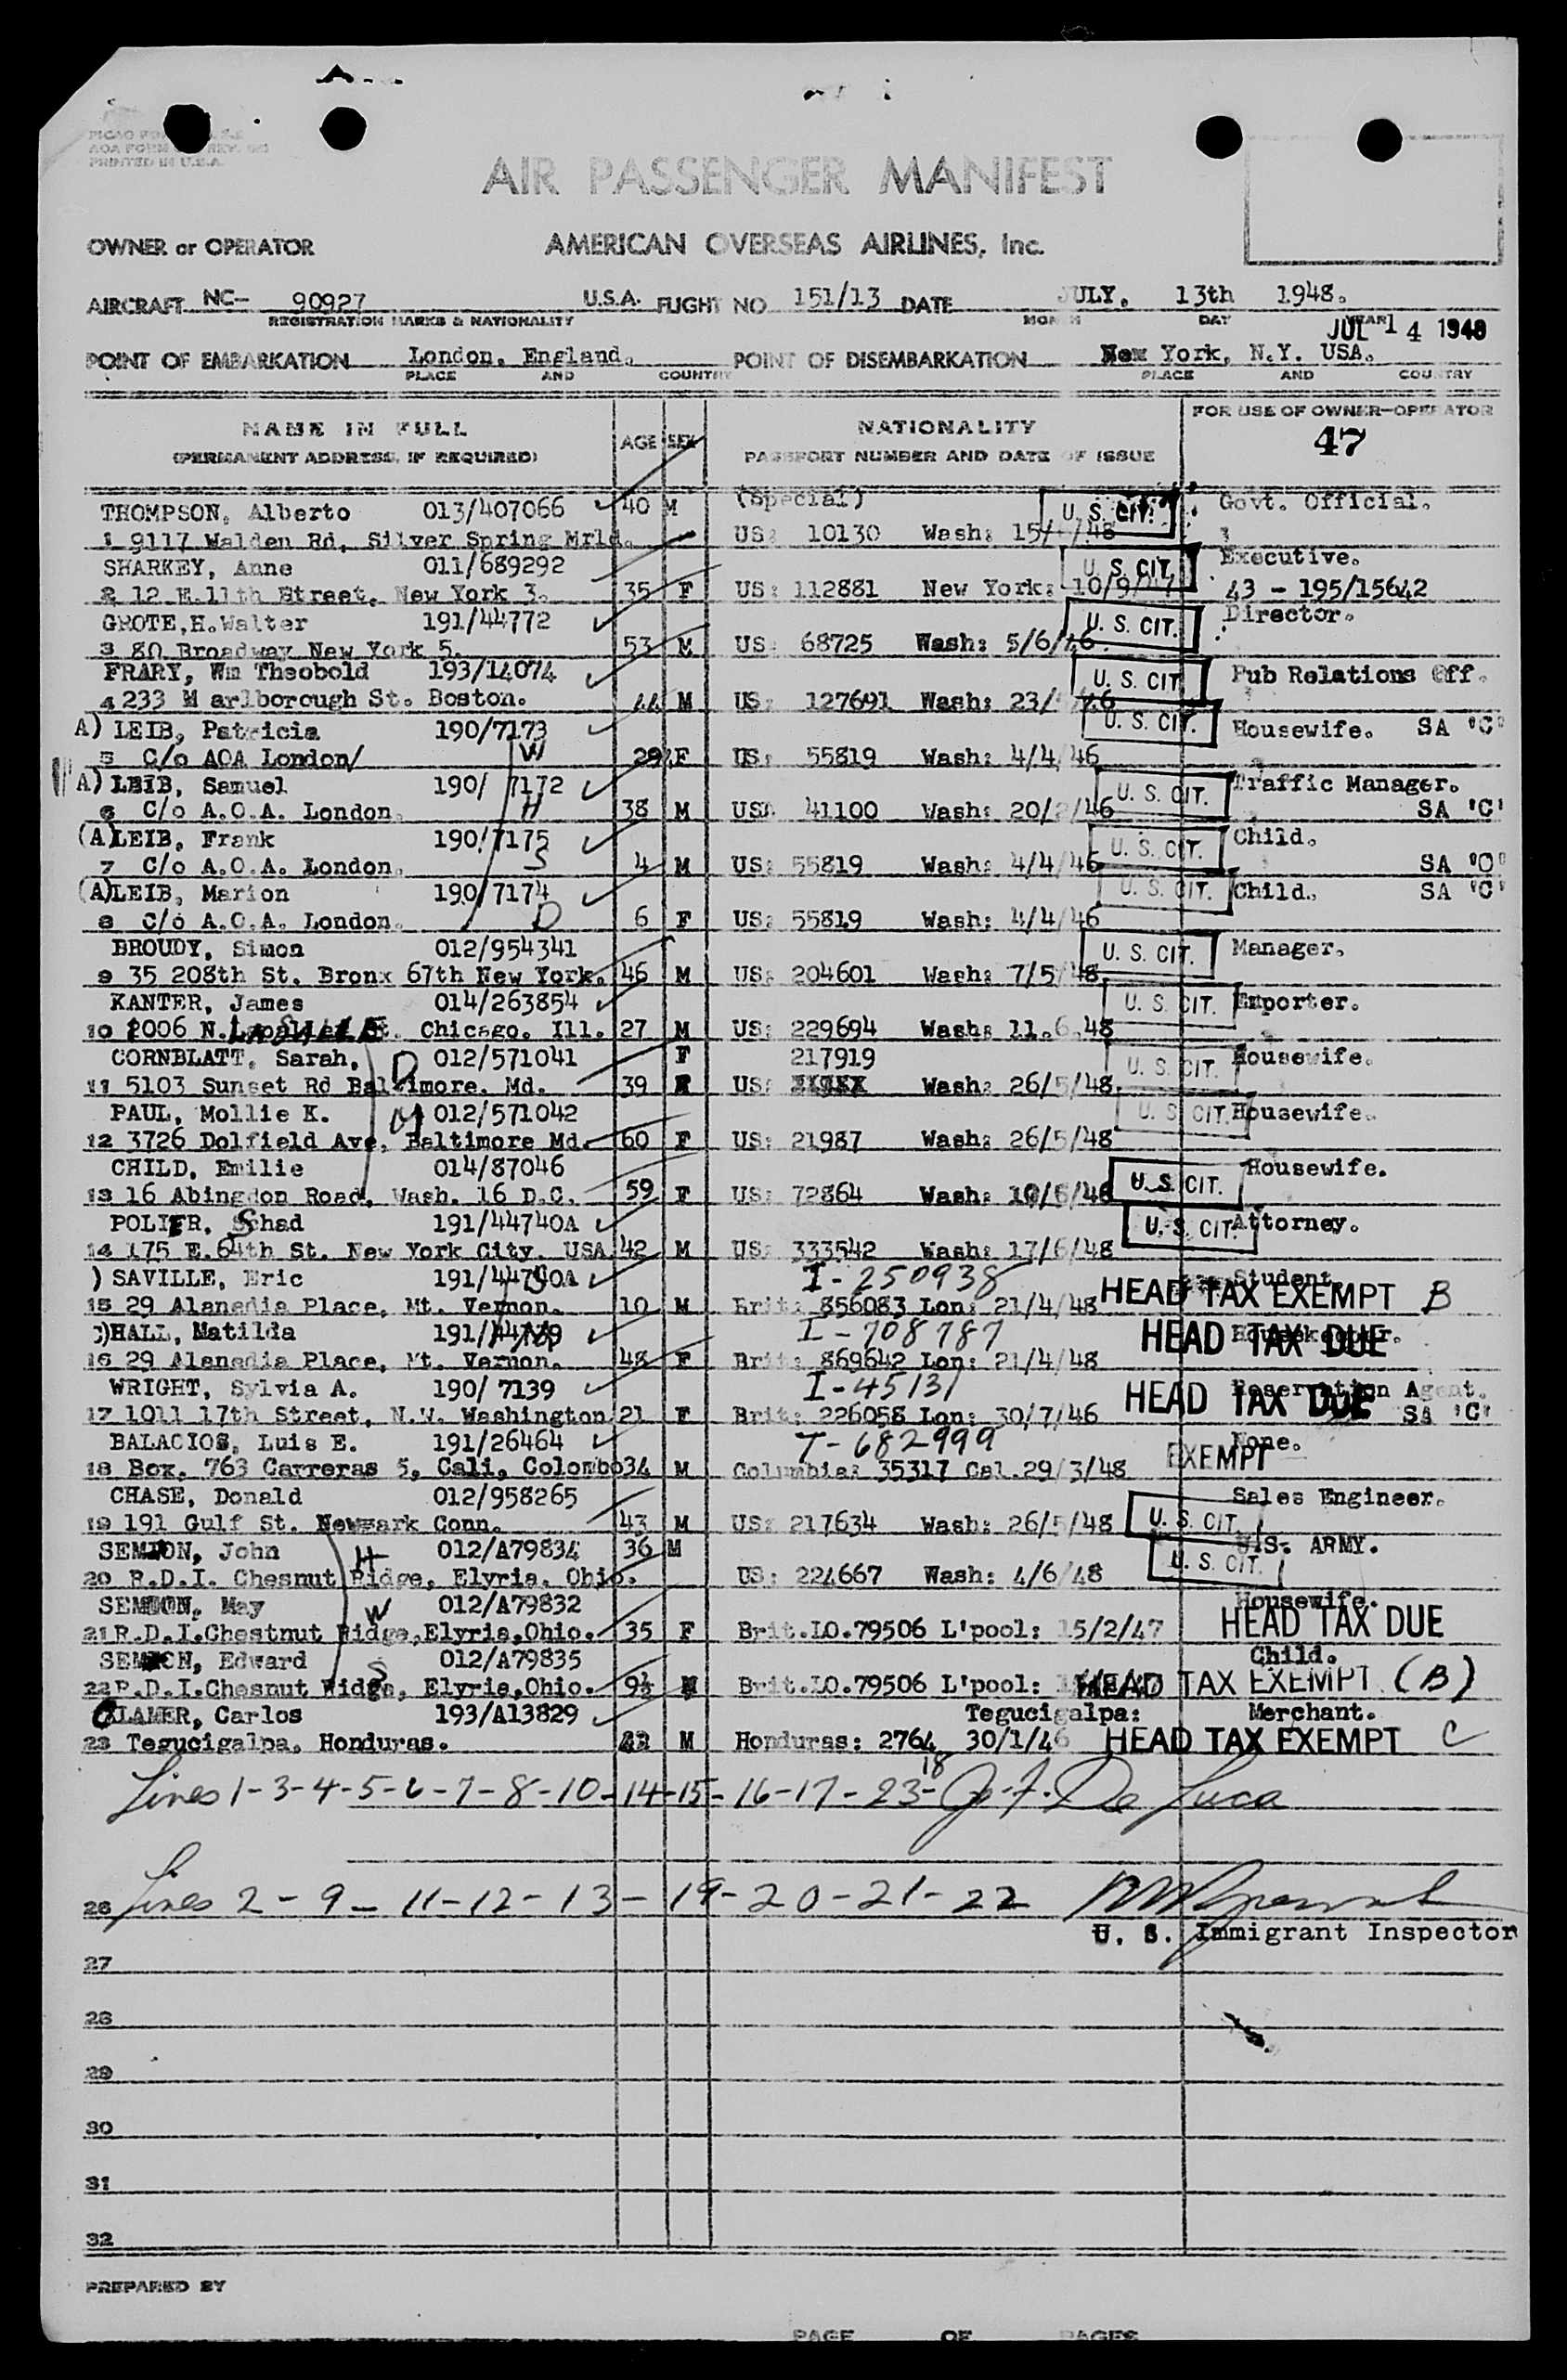 PRINTED IN U.S.A.
AIR PASSENGER MANIFEST
OWNER or OPERATOR AMERICAN OVERSEAS AIRLINES, Inc.
AIRCRAFT NC- 90927 U.S.A. FLIGHT NO 151/13 DATE JULY. 13th 1948.
REGISTRATION MARKS & NATIONALITY MONTH DAY YEAR
JUL 14 1948
POINT OF EMBARKATION London, England. POINT OF DISEMBARKATION New York, N.Y. USA.
PLACE AND COUNTRY PLACE AND COUNTRY
NAME IN FULL AGE SEX NATIONALITY FOR USE OF OWNER-OPERATOR
(PERMANENT ADDRESS, IF REQUIRED) PASSPORT NUMBER AND DATE OF ISSUE 47
THOMPSON, Alberto 013/407066 40 M (Special) U. S. CIT. Govt. Official.
1 9117 Walden Rd, Silver Spring Mrld. US: 10130 Wash:
SHARKEY, Anne 011/689292 U. S. CIT. Executive.
2 12 E.11th Street, New York 3. 35 F US: 112881 New York: 10/9/47 43 - 195/15642
GROTE,H.Walter 191/44772 U. S. CIT. Director.
3 80 Broadway New York 5. 53 M US: 68725 Wash: 5/6/46
FRARY, Wm Theobold 193/14074 U. S. CIT. Pub Relations Off.
4 233 M arlborough St. Boston. 44 M US: 127691 Wash:
A) LEIB, Patricia 190/7173 U. S. CIT. Housewife. SA "C"
5 C/o AOA London/ W 29 F US: 55819 Wash: 4/4/46
A) LEIB, Samuel 190/ 7172 U. S. CIT. Traffic Manager.
6 C/o A.O.A. London. H 38 M US: 41100 Wash: 20/2/46 SA 'C'
(A)LEIB, Frank 190/7175 U. S. CIT. Child.
7 C/o A.O.A. London. S 4 M US: 55819 Wash: 4/4/46 SA "C"
(A)LEIB, Marion 190/7174 U. S. CIT. Child. SA "C"
8 C/o A.O.A. London. D 6 F US: 55819 Wash: 4/4/46
BROUDY, Simon 012/954341 U. S. CIT. Manager.
9 35 208th St. Bronx 67th New York. 46 M US: 204601 Wash: 7/5/48
KANTER, James 014/263854 U. S. CIT. Exporter.
10 2006 N. LASALLE St. Chicago. Ill. 27 M US: 229694 Wash: 11.6.48
CORNBLATT, Sarah, D 012/571041 F 217919 U. S. CIT. Housewife.
11 5103 Sunset Rd Baltimore. Md. 39 US: Wash: 26/5/48.
PAUL, Mollie K. M 012/571042 U. S. CIT. Housewife.
12 3726 Dolfield Ave, Baltimore Md. 60 F US: 21987 Wash: 26/5/48
CHILD, Emilie 014/87046 U. S. CIT. Housewife.
13 16 Abingdon Road, Wash. 16 D.C. 59 F US: 72864 Wash: 10/6/48
POLIER, Shad 191/44740A U. S. CIT. Attorney.
14 175 E.64th St. New York City. USA 42 M US: 333542 Wash: 17/6/48
) SAVILLE, Eric 191/44790A I-250938 Student.
15 29 Alanadia Place, Mt. Vernon. 10 M Brit: 856083 Lon: 21/4/48 HEAD TAX EXEMPT B
)HALL, Matilda I-708787 Housekeeper.
16 29 Alanadia Place, Mt. Vernon. 48 F Brit: 869642 Lon: 21/4/48 HEAD TAX DUE
WRIGHT, Sylvia A. 190/ 7139 I-45131 Reservation Agent.
17 1011 17th Street, N.W. Washington 21 F Brit: 226058 Lon: 30/7/46 HEAD TAX DUE SA 'C'
BALACIOS, Luis E. 191/26464 T-682999 None.
18 Box. 763 Carreras 5, Cali, Colombo 34 M Columbia: 35317 Cal.29/3/48 EXEMPT
CHASE, Donald 012/958265 Sales Engineer.
19 191 Gulf St. Newark Conn. 43 M US: 217634 Wash: 26/5/48 U. S. CIT.
SEMION, John H 012/A79834 36 M U.S. ARMY.
20 R.D.I. Chesnut Ridge, Elyria. Ohio. US: 224667 Wash: 4/6/48 U. S. CIT.
SEMION, May W 012/A79832 Housewife.
21 R.D.I.Chestnut Ridge,Elyria,Ohio. 35 F Brit.LO.79506 L'pool: 15/2/47 HEAD TAX DUE
SEMION, Edward S 012/A79835 Child.
22 R.D.I.Chesnut Ridge, Elyria,Ohio. 9½ M Brit.LO.79506 L'pool: HEAD TAX EXEMPT (B)
CLAMER, Carlos 193/A13829 Tegucigalpa: Merchant.
23 Tegucigalpa, Honduras. M Honduras: 2764 30/1/46 HEAD TAX EXEMPT C
Lines 1-3-4-5-6-7-8-10-14-15-16-17-23-18 J. F. De Luca
26 Lines 2-9-11-12-13-19-20-21-22
U. S. Immigrant Inspector
27
28
29
30
31
32
PREPARED BY
PAGE OF PAGES